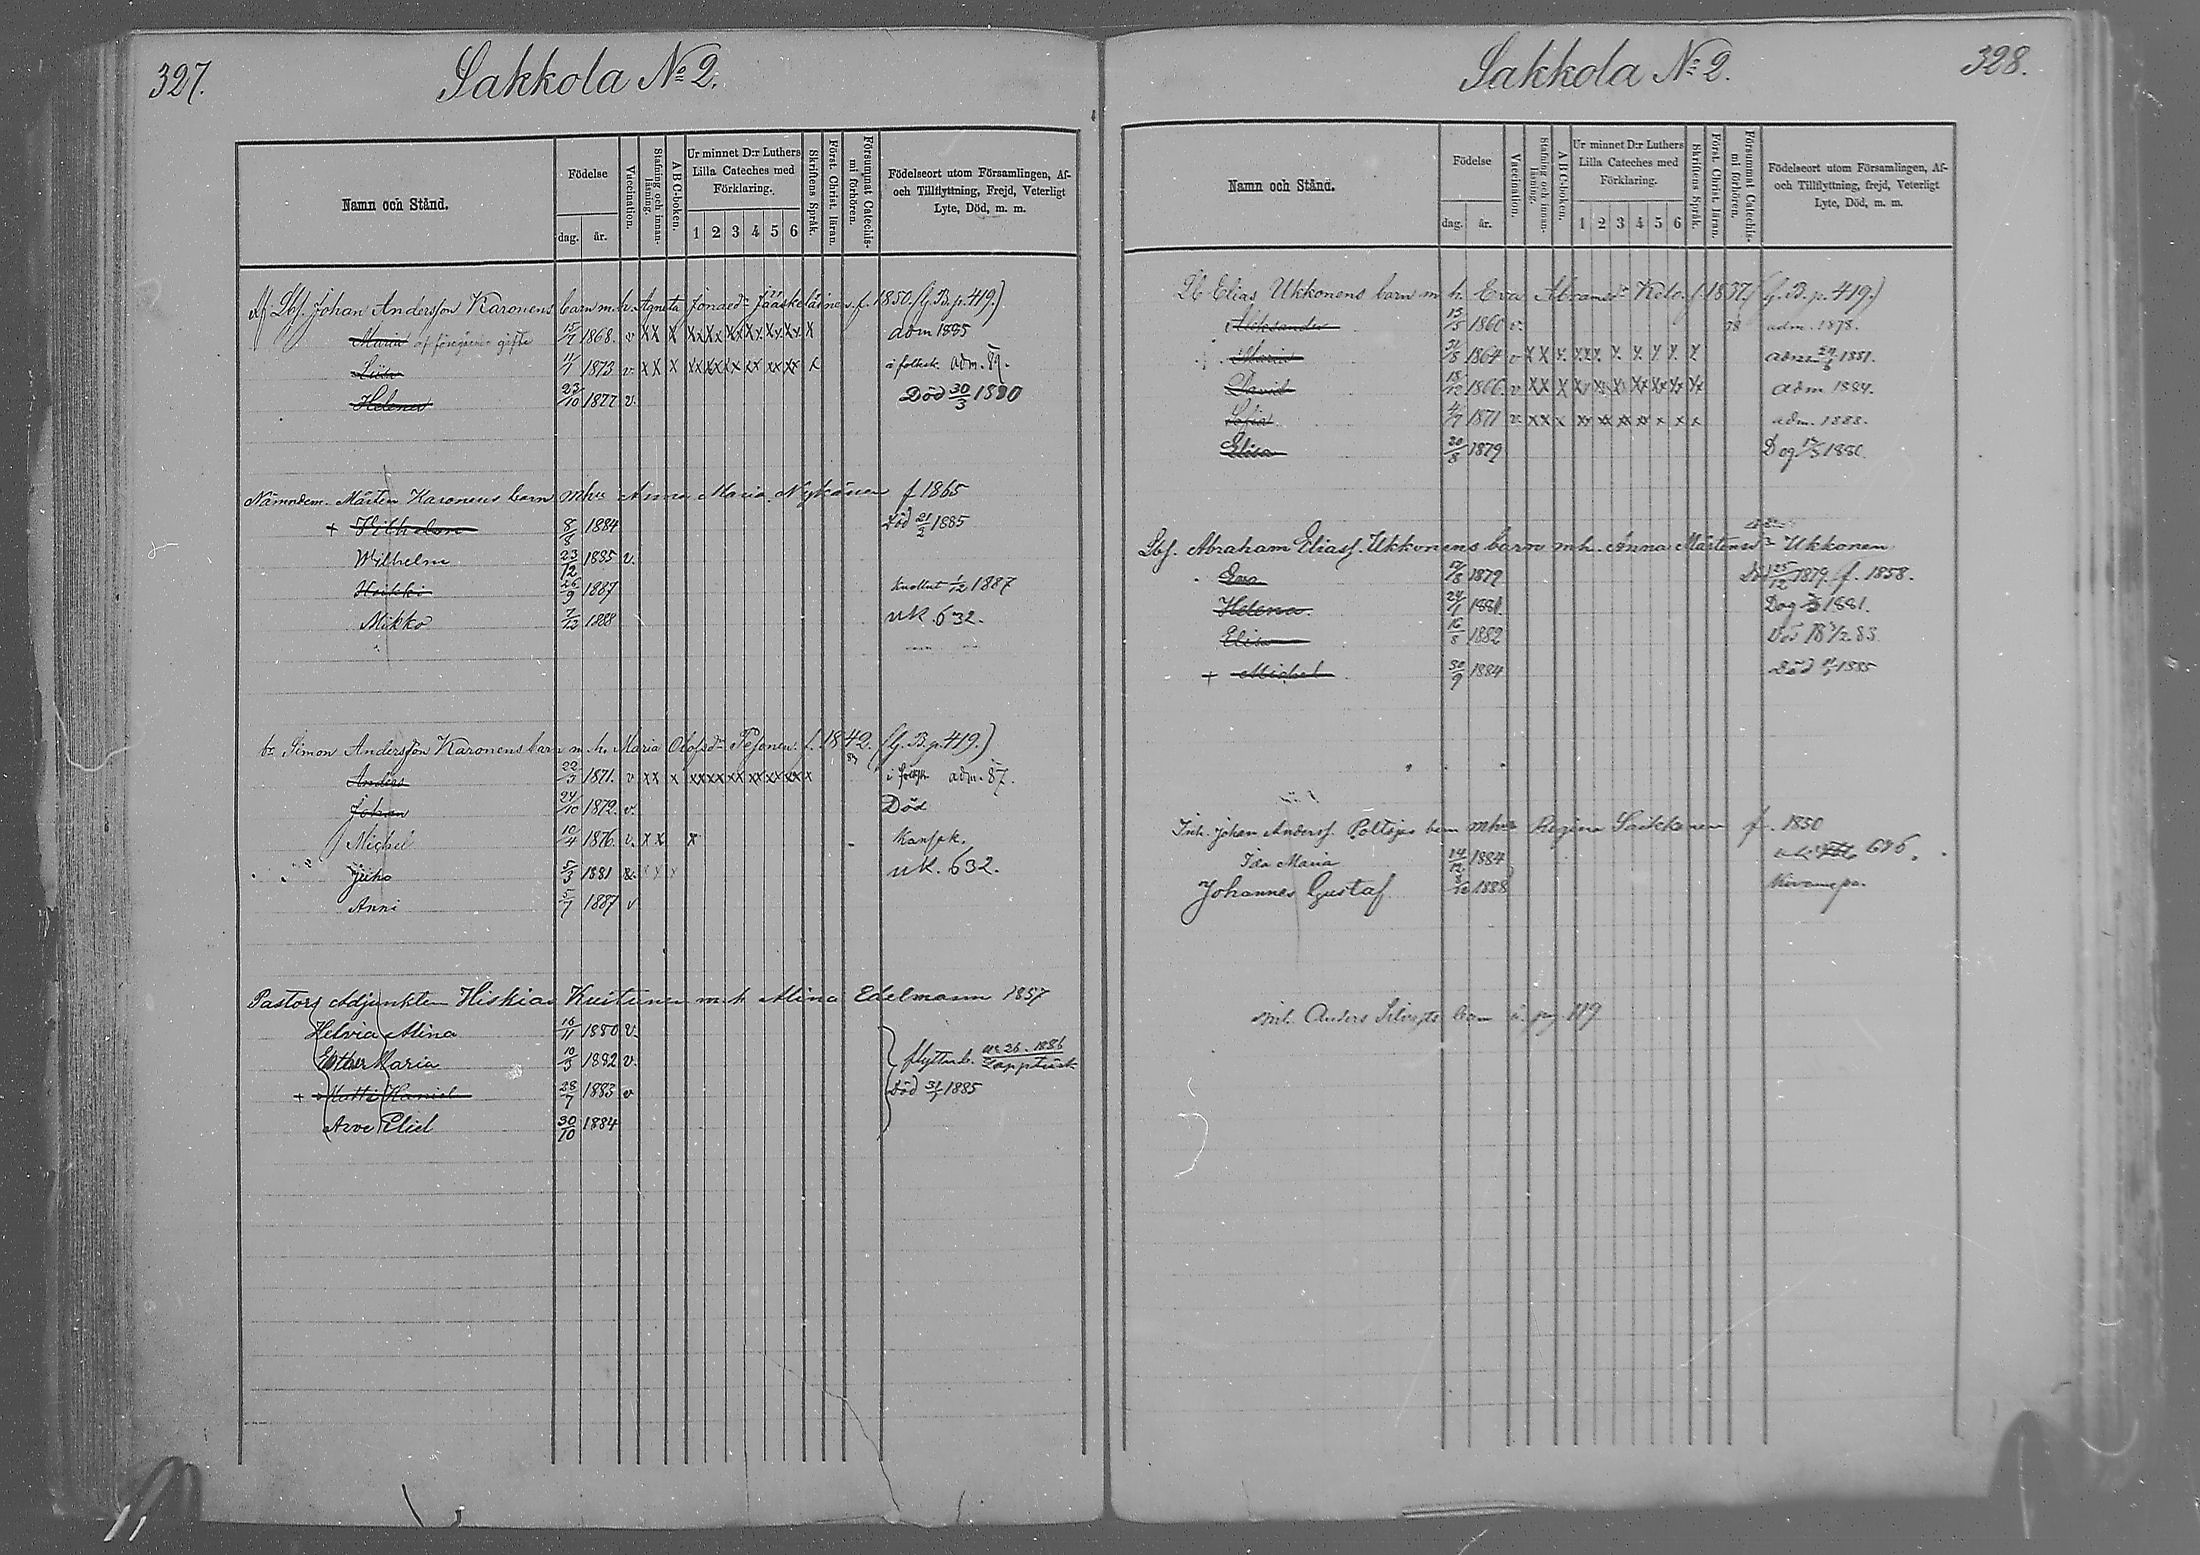 327.
Sakkola № 2.
Namn och Stånd.
Födelse
dag.
år.
Vaccination.
Stafning och innan-läsning.
A B C-boken.
Ur minnet D:r Luthers Lilla Cateches med Förklaring.
1 2 3 4 5 6
Skriftens Språk.
Först. Christ. läran.
Försummat Catechis-mi förhören.
Födelseort utom Församlingen, Af- och Tillflyttning, Frejd, Veterligt Lyte, Död, m. m.
Lbf. Johan Andersson Karonens barn m. h. Agneta Jonaed:r Jääskeläinen f. 1850. (G. B. p. 419.)
Maria 15/7 1868. v xx x xx xx xx xx xx xx x adm 1885
4/7 1873 v. xx x xx xx xx xx xx xx x i folksk. adm. 89.
Helena 23/10 1877 v. Död 30/3 1880
Nämndem. Mårten Karonens barn mhu Anna Maria Nykänen f 1865
+ Vilhelm 8/8 1884 Död 21/2 1885
Wilhelm 23/12 1885 v.
Heikki 26/9 1887 1/12 1887
Mikko 7/12 1888 uk. 632.
br. Simon Andersson Karonens barn m. h. Maria Olofsd:r Pesonen f. 1842. (G. B. p. 419.)
Anders 22/3 1871. v xx x xx xx xx xx xx xx x adm. 87.
Johan 24/10 1872. v. Död
Michel 10/4 1876 v. x x x Kansk.
Juho 5/3 1881 uk. 632.
Anni 5/7 1887 v
Pastors Adjunkten Hiskias Kuitunen m. h Alina Edelmann 1857
Helvia Alina 16/11 1880 v.
Esther Maria 10/5 1882 v. flyttn.b. no 26. 1886
+ Matti Haniel 28/7 1883 v Död 31/7 1885
Arve Eliel 30/10 1884
328.
Sakkola № 2.
Namn och Stånd.
Födelse
dag.
år.
Vaccination.
Stafning och innan-läsning.
A B C-boken.
Ur minnet D:r Luthers Lilla Cateches med Förklaring.
1 2 3 4 5 6
Skriftens Språk.
Först. Christ. läran.
Försummat Catechis-mi förhören.
Födelseort utom Församlingen, Af- och Tillflyttning, frejd, Veterligt Lyte, Död, m. m.
Lb Elias Ukkonens barn m h. Eva Abramsd:r Kelo f. 1837. (G. B. p. 419.)
Aleksander 15/5 1860 v. 78 adm. 1878.
Maria 1864 v x x x xx x x x x x x adm 1881.
David 18/12 1866. v xx x xx xx xx xx xx xx xx adm 1884.
Sofia 4/7 1871 v. x x x xx xx xx xx x x x adm. 1888.
Elisa 20/8 1879 Dog 1880.
Lbf. Abraham Eliasf. Ukkonens barn m.h. Anna Mårtensd:r Ukkonen
Eva 17/8 1879 Död 25/12 1879. f. 1858.
Helena 24/1 1881 Dog 1881.
Elisa 16/8 1882 Död 83
+ Michel 30/9 1884 Död 1885
Inh. Johan Anderss. Poltojas barn mhu Regina Saikkonen f. 1850
Ida Maria 14/12 1884 696.
Johannes Gustaf 8/12 1888
Anders barn pag 119